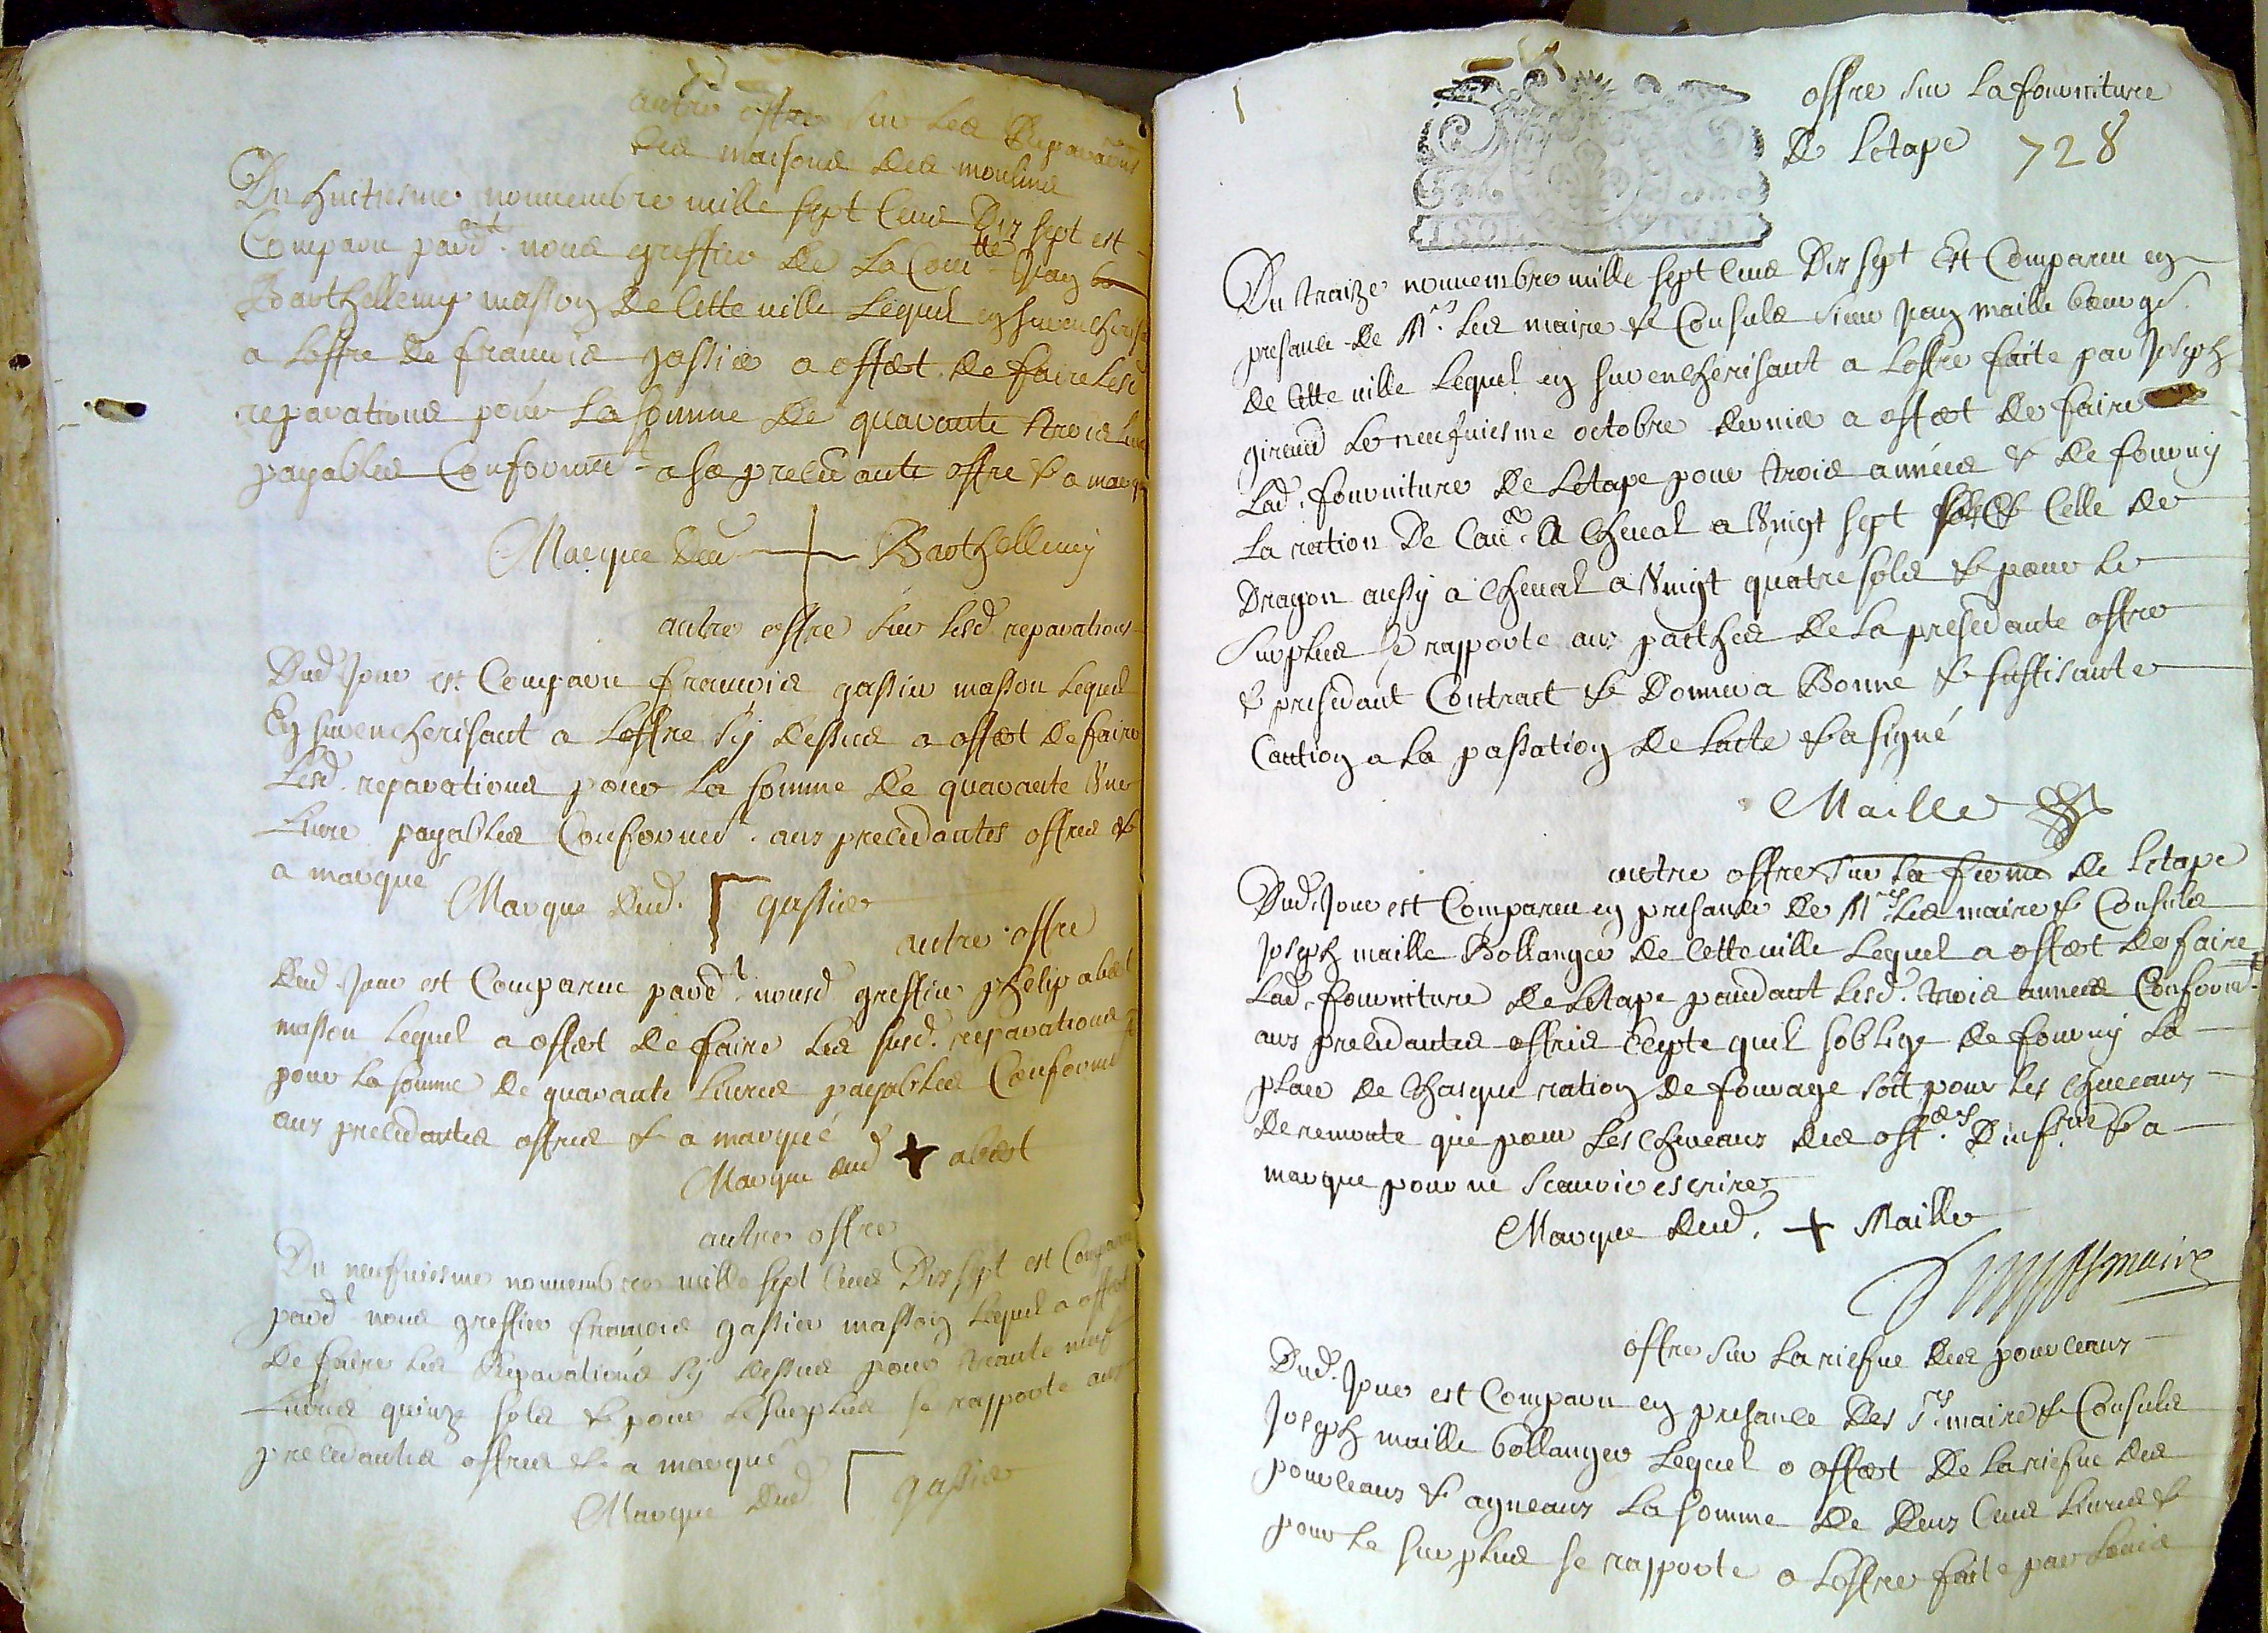 autre offre sur les Reparaons
des maisons des moulins
Du huitiesme nouuembre mille sept Cens Dix sept est
Comparu pard.t nous greffier de La Com.tte Jean
Barthellemy masson De Cette uille Lequel en surencheriss
a Loffre de francois gassier a offert de faire Lesd
reparations pour La somme De quarante trois Liur
payables Conformem.t a sa precedante offre & a marq
Marque dud Barthellemy
autre offre sur Lesd. reparations
Dud Jour est Comparu francois gassier masson Lequel
En surencherisant a Loffre sy dessus a offert de faire
Lesd. reparations pour La somme De quarante Vne
Liure payables Conformem.t aux precedantes offres &
a marqué
Marque dud. gassier
autre offre
Dud. Jour est Comparu pard.t nousd greffier phelip abert
masson Lequel a offert De faire Les susd. reparations
pour La somme De quarante Liures payables Conformem
aux precedantes offres & a marqué
Marque dud abert
autre offre
Du neufuiesme nouuembre mille sept Cens Dix sept est Comparu
pard.t nous greffier francois gassier masson Lequel a offert
De faire Les Reparations sy dessus pour trante neuf
Liures quinze sols & pour Le surplus se rapporte aux
precedantes offres & a marqué
Marque Dud gassier
offre sur La fourniture
De Letape 728
Du traize nouuembre mille sept Cens Dix sept Est Comparu en
presance de M.rs Les maire & Consuls sieur Jean maille bourg.s
de Cette uille Lequel en surencherisant a Loffre faite par Joseph
giraud Le neufuiesme octobre dernier a offert De faire
Lad. fourniture De Letape pour trois années & De fourny
La ration De Cau.er A Cheual a Vuigt sept sols & Celle de
Dragon aussy a Cheual a Vuigt quatre sols & pour Le
surplus se rapporte aux pacthes De La presedante offre
& presedant Contract & Donnera Bonne & suffisante
Caution a La passation De Lacte & a signé
Maille
autre offre sur La ferme de Letape
Dud. Jour est Comparu en presance De M.rs Les maire & Consuls
Joseph maille Bollanger De Cette uille Lequel a offert De faire
Lad. fourniture De Letape pandant Lesd. trois années Conform.t
aux precedantes offres Cepte quil soblige De fourny La
place De Chasque ration De fourage soit pour les cheueaux
De remonte que pour Les Cheueaux des off.ers Dinf.rie & a
marque pour ne scauoir escrire
Marque dud. Maille
maire
offre sur La riefue des pourceaux
Dud. Jour est Comparu en presance Des s.rs maire & Consuls
Joseph maille bollanger Lequel a offert De La riefue des
pourceaux & agneaux La somme De Deux Cens Liures &
pour Le surplus se rapporte a Loffre faite par Louis